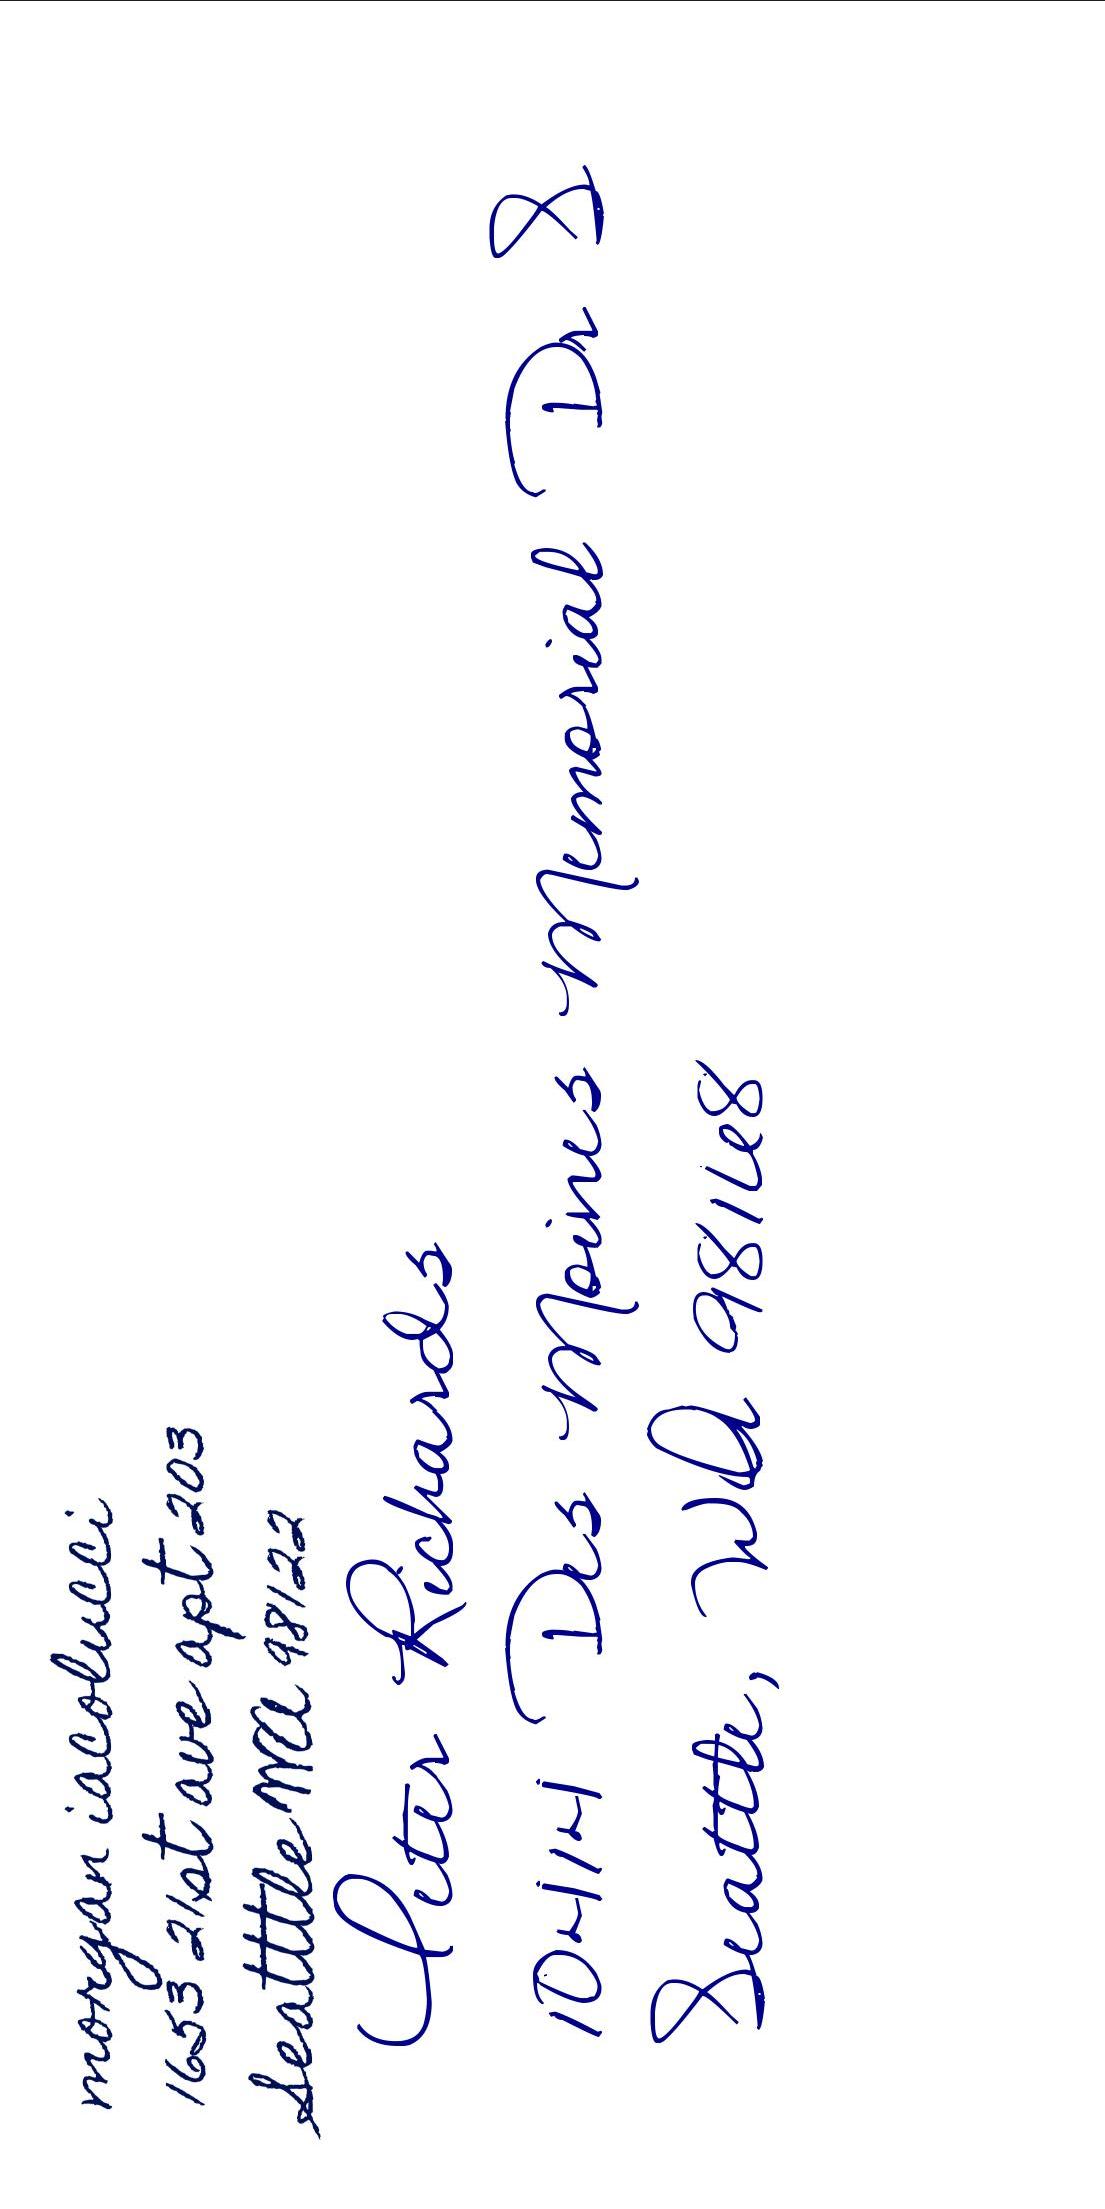 morgan iacolucci
1653 21st ave apt 203
Seattle WA 98122
Peter Richards
10414 Des Moines Memorial Dr S
Seattle, WA 98168